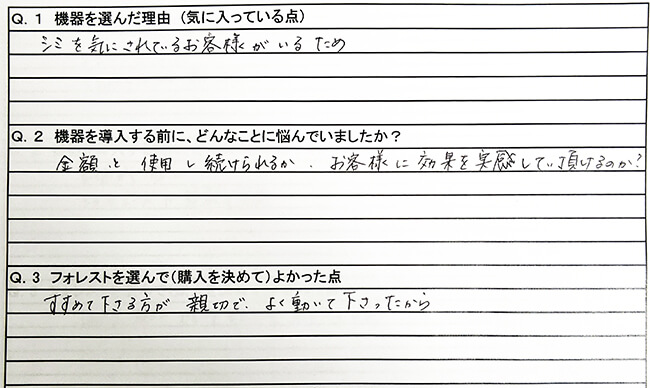 Q. 1 機器を選んだ理由（気に入っている点）
シミを気にされているお客様がいるため
Q. 2 機器を導入する前に、どんなことに悩んでいましたか？
金額と使用し続けられるか、お客様に効果を実感して頂けるのか？
Q. 3 フォレストを選んで（購入を決めて）よかった点
すすめて下さる方が親切で、よく動いて下さったから